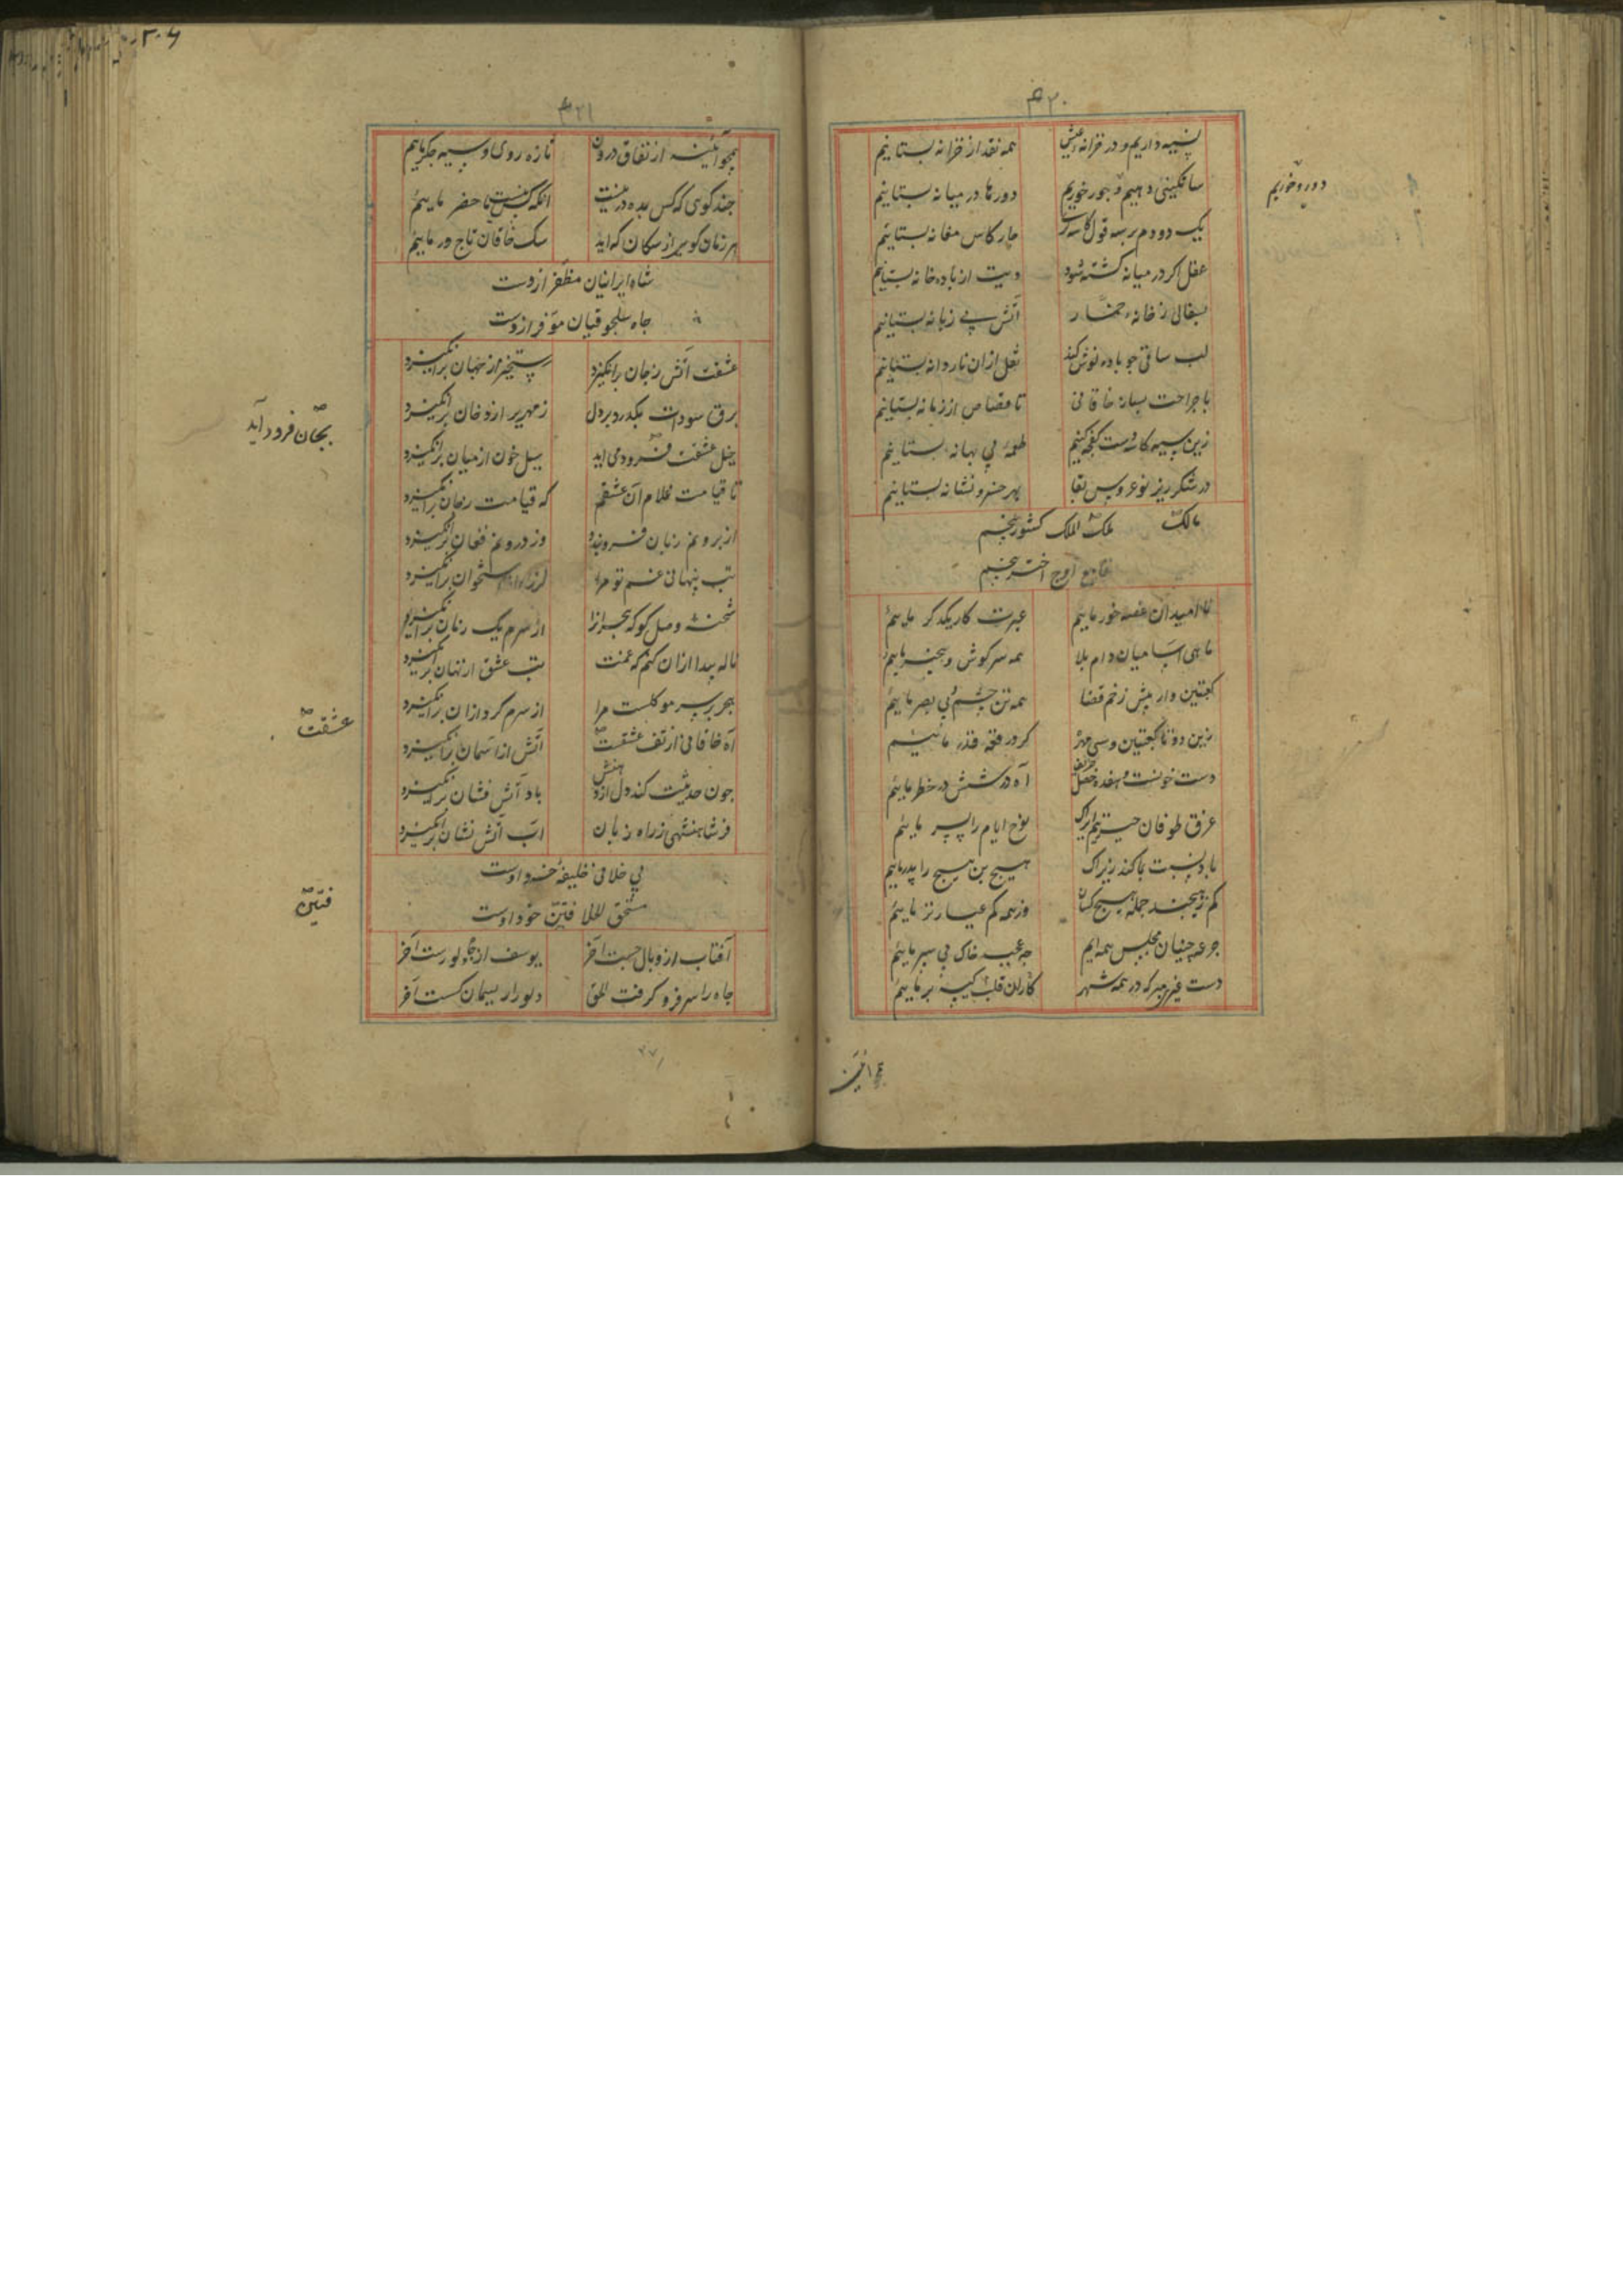 ۴۲۰
پنبه داریم و در خزانه عیش همه نقد از خزانه بستانیم
ساتکینی دهیم و بجور خوریم دورها در میانه بستانیم
دور و خوریم
یک دو دم بر سه قول کاسه چار کاس مغانه بستانیم
عقل اکر در میانه کشته شود دیت از باده خانه بستانیم
بسفالی ز خانه خمار آتش بی زبانه بستانیم
لب ساقی جو باده نوش کند نقل از ان ناردانه بستانیم
با جراحت بساز خاقانی تا قصاص از زمانه بستانیم
زین سیه کاسه دست کفجه کنیم طعمه بی بهانه بستانیم
در شکر ریز نوعروس بقا بهر خسرو نشانه بستانیم
مالک ملک الملک کشور پنجم
اوج اختر پنجم
نا امیدان غصه خور ماییم عبرت کار یکدکر ماییم
ماهی اسا میان دام بلا همه سر کوش و بیخبر ماییم
کعبتین وار پیش زخم قضا همه تن چشم و بی بصر ماییم
زین دو تا کعبتین و سی مهره کرو رقعه قدر ماییم
دست خونست و هفده خصل حریف آه در ششدر خطر ماییم
غرق طوفان حیرتیم ایراک نوح ایام را پسر ماییم
با دنسبت با کند زیراک هیچ بن هیچ را پدر ماییم
کم ز هیچند جمله هیچ کسان وز همه کم عیارتر ماییم
جرعه چینان مجلس همه ایم جه عجب خاک پی سپر ماییم
دست غیر مبر که در همه شهر کاران قلب کیسه بر ماییم
۴۲۱
۲۰۶
همچو آئینه از نفاق درون تازه روی و سیه جکر ماییم
جند کوی که کس بده در نیست انکه کس نیست ما حضر ماییم
هر زمان کوی از سکان که اید سک خاقان تاج ور ماییم
شاه ایرانیان مظفر ازوست
جاه سلجوقیان موفر ازوست
عشقت آتش ز جان برانکیزد رستخیز از جهان برانکیزد
برق سودات بکذرد بر دل زمهریر از دخان برانکیزد
خیل عشقت فرود می اید سیل خون از میان برانکیزد
بجان فرود آید
تا قیامت غلام آن عشقم که قیامت ز جان برانکیزد
از برونم زبان فرو بندد وز درونم فغان برانکیزد
تب پنهانی غم تو مرا لرزه از استخوان برانکیزد
شحنه وصل کو که هجرانرا از سرم یک زمان برانکیزد
ناله پیدا ازان کنم که غمت تب عشق از نهان برانکیزد
هجر بر سر موکلست مرا از سرم کرد ازان برانکیزد
آه خاقانی از تف عشقت آتش از آسمان برانکیزد
عشقت
جون حدیثت کند دل از دهنش باد آتش فشان برانکیزد
فر شاهنشهی ز راه زبان اب آتش نشان برانکیزد
بی خلافی خلیفه خرد اوست
مستحق الخلافتین خود اوست
فتین
آفتاب از وبال جست آخر یوسف از چاه و دلو رست آخر
جاه را سر فرو کرفت الحق دلو را ریسمان کسست آخر